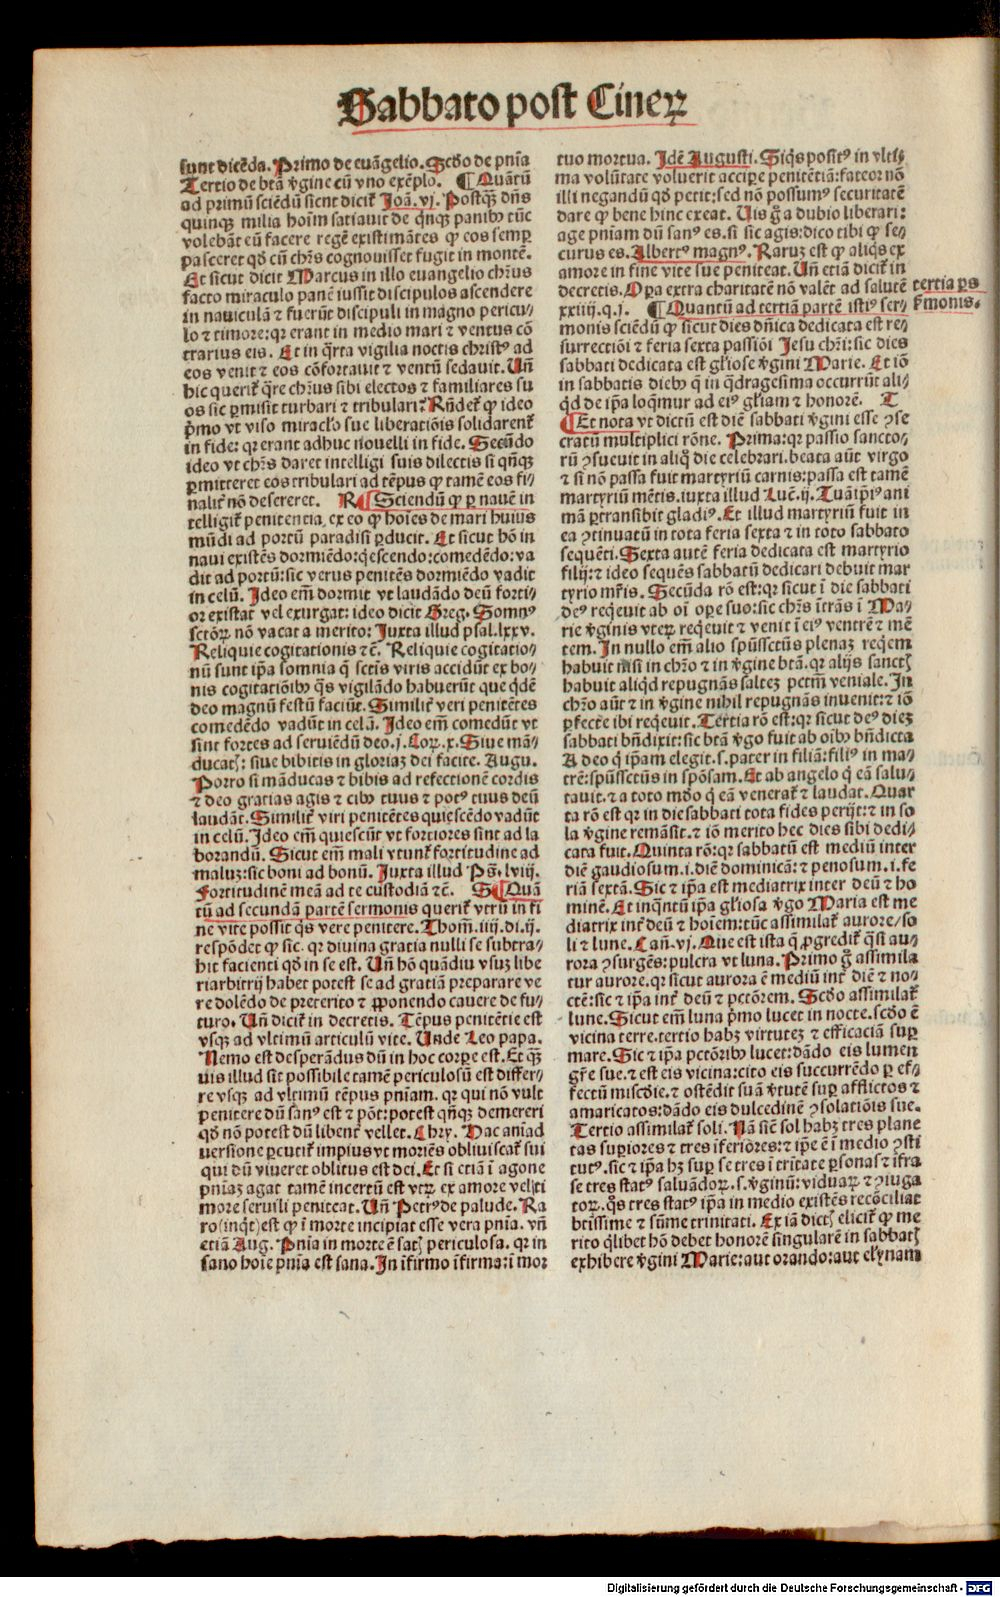 Sabbato post Cineꝝ
sunt dicēda. Primo de euāgelio. Scd̓o de pn̄ia
Tertio de btā ꝟgine cū vno exēplo. ¶ Quātū
ad primū sciēdū sicut dicit̄ Joā. vj. Postqꝫ dn̄s
quinqꝫ milia hoīm satiauit de qnqꝫ panibꝰ tūc
volebāt eū facere regē existimātes ꝙ eos semꝑ
pasceret qd̓ cū chr̄s cognouisset fugit in montē.
Et sicut dicit Marcus in illo euangelio chr̄us
facto miraculo panē iussit discipulos ascendere
in nauiculā ⁊ fuerūt discipuli in magno pericu⸗
lo ⁊ timore: qꝛ erant in medio mari ⁊ ventus cō
trarius eis. Et in qrta vigilia noctis christꝰ ad
eos venit ⁊ eos cōfortauit ⁊ ventū sedauit. Un̄
hic querit̄ qre chr̄us sibi electos ⁊ familiares su
os sic ꝑmisit turbari ⁊ tribulari? Rn̄det̄ ꝙ ideo
pmo vt viso miraclo sue liberatiōis solidarent̄
in fide: qꝛ erant adhuc nouelli in fide. Secūdo
ideo vt chr̄s daret intelligi suis dilectis si qn̄qꝫ
ꝑmitteret eos tribulari ad tēpus ꝙ tamē eos fi⸗
nalit̄ nō desereret. R ¶ Sciendū ꝙ ꝑ nauē in
telligit̄ penitentia, ex eo ꝙ hoīes de mari huius
mūdi ad portū paradisi ꝑducit. Et sicut hō in
naui existēs dormiēdo: qescendo: comedēdo: va
dit ad portū: sic verus penitēs dormiēdo vadit
in celū. Ideo em̄ dormit vt laudādo deū forti⸗
or existat vel exurgat: ideo dicit Greg. Somnꝰ
sctōꝝ nō vacat a merito: Juxta illud psal. lxxv.
Reliquie cogitationis ⁊c̄. Reliquie cogitatio⸗
nū sunt ip̄a somnia q̄ sctīs viris accidūt ex bo⸗
nis cogitatiōibꝰ qs vigilādo habuerūt que qdē
deo magnū festū faciūt. Similit̄ veri penitētes
comedēdo vadūt in celū. Ideo em̄ comedūt vt
sint fortes ad seruiēdū deo. j. Coꝝ. x. Siue mā⸗
ducatꝭ: siue bibitis in gloriaꝫ dei facite. Augu.
Porro si māducas ⁊ bibis ad refectionē cordis
⁊ deo gratias agis ⁊ cibꝰ tuus ⁊ potꝰ tuus deū
laudāt. Similit̄ viri penitētes quiescēdo vadūt
in celū. Ideo em̄ quiescūt vt fortiores sint ad la
borandū. Sicut em̄ mali vtunt̄ fortitudine ad
maluꝫ: sic boni ad bonū. Juxta illud Ps̄. lviij.
Fortitudinē meā ad te custodiā ⁊c̄. S ¶ Quā
tū ad secundā partē sermonis querit̄ vtrū in fi
ne vite possit qs vere penitere. Thom̄. iiij. di. ij.
respōdet ꝙ sic. qꝛ diuina gratia nulli se subtra⸗
hit facienti qd̓ in se est. Un̄ hō quādiu vsuꝫ libe
riarbitrij habet potest se ad gratiā preparare ve
re dolēdo de preterito ⁊ ꝓponendo cauere de fu⸗
turo. Un̄ dicit̄ in decretis. Tēpus penitētie est
vsqꝫ ad vltimū articulū vite. Unde Leo papa.
Nemo est desperādus dū in hoc corpe est. Et qꝫ
uis illud sit possibile tamē periculosū est differ⸗
re vsqꝫ ad vltimū tēpus pn̄iam. qꝛ qui nō vult
penitere dū sanꝰ est ⁊ pōt: potest qn̄qꝫ demereri
qd̓ nō potest dū libent̄ vellet. Chry. Hac aīad
uersione ꝑcutit̄ impius vt moriēs obliuiscat̄ sui
qui dū viueret oblitus est dei. Et si etiā ī agone
pn̄iaꝫ agat tamē incertū est vtꝝ ex amore vel ti
more seruili peniteat. Un̄ Petrꝰ de palude. Ra
ro (inqt) est ꝙ ī morte incipiat esse vera pn̄ia. vn̄
etiā Aug. Pn̄ia in morte ē satꝭ periculosa. qꝛ in
sano hoīe pn̄ia est sana. In ifirmo ifirma: ī mor
tuo mortua. Idē Augusti. Siqs positꝰ in vlti⸗
ma volūtate voluerit accipe penitētiā: fateor nō
illi negandū qd̓ petit: sed nō possumꝰ securitatē
dare ꝙ bene hinc exeat. Uis g̊ a dubio liberari:
age pn̄iam dū sanꝰ es. si sic agis: dico tibi ꝙ se⸗
curus es. Albertꝰ magnꝰ. Raruꝫ est ꝙ aliqs ex
amore in fine vite sue peniteat. Un̄ etiā dicit̄ in
decretis. Opa extra charitatē nō valēt ad salutē
xxiiij. q. j. ¶ Quantū ad tertiā partē istiꝰ ser⸗
tertia ps
ꝑmonis.
monis sciēdū ꝙ sicut dies dn̄ica dedicata est re⸗
surrectiōi ⁊ feria sexta passiōi Jesu chr̄i: sic dies
sabbati dedicata est gl̓iose ꝟgini Marie. Et iō
in sabbatis diebꝰ q̄ in qdragesima occurrūt ali⸗
qd de ip̄a loqmur ad eiꝰ gl̓iam ⁊ honorē. T
¶ Et nota vt dictū est diē sabbati ꝟgini esse ↄse
cratū multiplici rōne. Prima: qꝛ passio sancto⸗
rū ↄsueuit in aliq̄ die celebrari. beata aūt virgo
⁊ si nō passa fuit martyriū carnis: passa est tamē
martyriū mētis. iuxta illud Luc̄. ij. Tuā ip̄iꝰ ani
mā ꝑtransibit gladiꝰ. Et illud martyriū fuit in
ea ↄtinuatū in tota feria sexta ⁊ in toto sabbato
sequēti. Sexta autē feria dedicata est martyrio
filij: ⁊ ideo sequēs sabbatū dedicari debuit mar
tyrio mr̄is. Secūda rō est: qꝛ sicut ī die sabbati
deꝰ reqeuit ab oī ope suo: sic chr̄s ītrās ī Ma⸗
rie ꝟginis vteꝝ reqeuit ⁊ venit ī eiꝰ ventrē ⁊ mē
tem. In nullo em̄ alio spūssctūs plenaꝫ reqem
habuit nisi in chr̄o ⁊ in ꝟgine btā. qꝛ alijs sanctꝭ
habuit aliqd repugnās salteꝫ pctm̄ veniale. In
chr̄o aūt ⁊ in ꝟgine nihil repugnās inuenit: ⁊ iō
ꝑfecte ibi reqeuit. Tertia rō est: qꝛ sicut deꝰ dieꝫ
sabbati bn̄dixit: sic btā ꝟgo fuit ab oībꝰ bn̄dicta
A deo q̄ ip̄am elegit. s. pater in filiā: filiꝰ in ma⸗
trē: spūssctūs in spōsam. Et ab angelo q̄ eā salu⸗
tauit. ⁊ a toto mūdo q̄ eā venerat̄ ⁊ laudat. Quar
ta rō est qꝛ in die sabbati tota fides perijt: ⁊ in so
la ꝟgine remāsit. ⁊ iō merito hec dies sibi dedi⸗
cata fuit. Quinta rō: qꝛ sabbatū est mediū inter
diē gaudiosum. i. diē dominicā: ⁊ penosum. i. fe
riā sextā. Sic ⁊ ip̄a est mediatrix inter deū ⁊ ho
minē. Et inqntū ip̄a gl̓iosa ꝟgo Maria est me
diatrix int̄ deū ⁊ hoīem: tūc assimilat̄ aurore/so
li ⁊ lune. Can̄. vj. Que est ista q̄ ꝓgredit̄ qsi au⸗
rora ↄsurgēs: pulcra vt luna. Primo g̊ assimila
tur aurore. qꝛ sicut aurora ē mediū int̄ diē ⁊ no⸗
ctē: sic ⁊ ip̄a int̄ deū ⁊ pctōrem. Scd̓o assimilat̄
lune. Sicut em̄ luna pmo lucet in nocte. scd̓o ē
vicina terre. tertio habꝫ virtuteꝫ ⁊ efficaciā suꝑ
mare. Sic ⁊ ip̄a pctōribꝰ lucet: dādo eis lumen
gr̄e sue. ⁊ est eis vicina: cito eis succurrēdo ꝑ ef⸗
fectū miscd̓ie. ⁊ ostēdit suā ꝟtutē suꝑ afflictos ⁊
amaricatos: dādo eis dulcedinē ↄsolatiōis sue.
Tertio assimilat̄ soli. Nā sicut sol habꝫ tres plane
tas supiores ⁊ tres īferiōres: ⁊ ip̄e ē ī medio ↄsti
tutꝰ. sic ⁊ ip̄a hꝫ suꝑ se tres ī trītate psonas ⁊ īfra
se tres statꝰ saluādoꝝ. s. ꝟginū: viduaꝝ ⁊ ↄiuga
toꝝ. qs tres statꝰ ip̄a in medio existēs recōciliat
btissime ⁊ sūme trinitati. Ex iā dictꝭ elicit̄ ꝙ me
rito qlibet hō debet honorē singularē in sabbatꝭ
exhibere ꝟgini Marie: aut orando: aut elynam
Digitalisierung gefördert durch die Deutsche Forschungsgemeinschaft - DFG